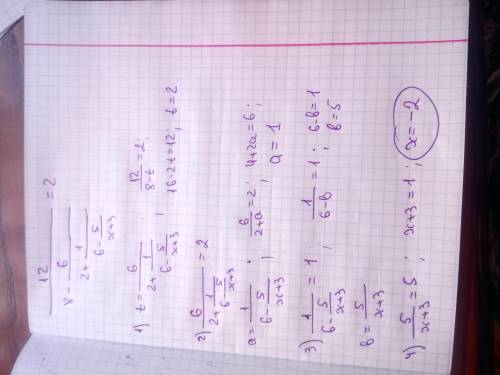 12 / (8 - 6 / (2 + 1 / (6 - 5 / (x+3)))) = 2
1) t = 6 / (2 + 1 / (6 - 5 / (x+3))) ; 12 / (8-t) = 2 ;
16-2t=12; t=2
2) 6 / (2 + 1 / (6 - 5 / (x+3))) = 2
a = 1 / (6 - 5 / (x+3)) ; 6 / (2+a) = 2 ; 4+2a=6 ;
a=1
3) 1 / (6 - 5 / (x+3)) = 1 ; 1 / (6-b) = 1 ; 6-b=1
b = 5 / (x+3) b=5
4) 5 / (x+3) = 5 ; x+3=1 ; x=-2